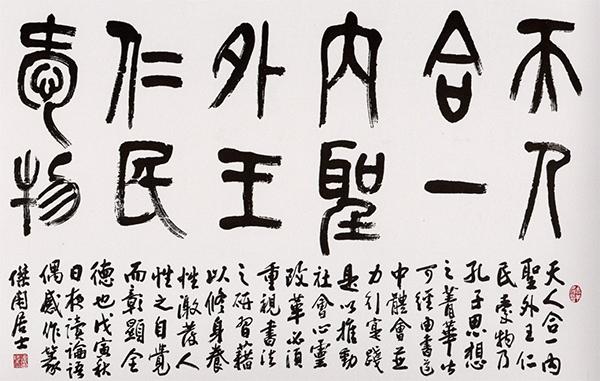 天人
合一
內聖
外王
仁民
愛物
天人合一內
聖外王仁
民愛物乃
孔子思想
之菁華此
可經由書道
中體會並
力行實踐
是以推動
社會心靈
改革必須
重視書法
之研習藉
以修身養
性激發人
性之自覺
而彰顯全
德也戊寅秋
日夜讀論語
偶感作篆
傑居士